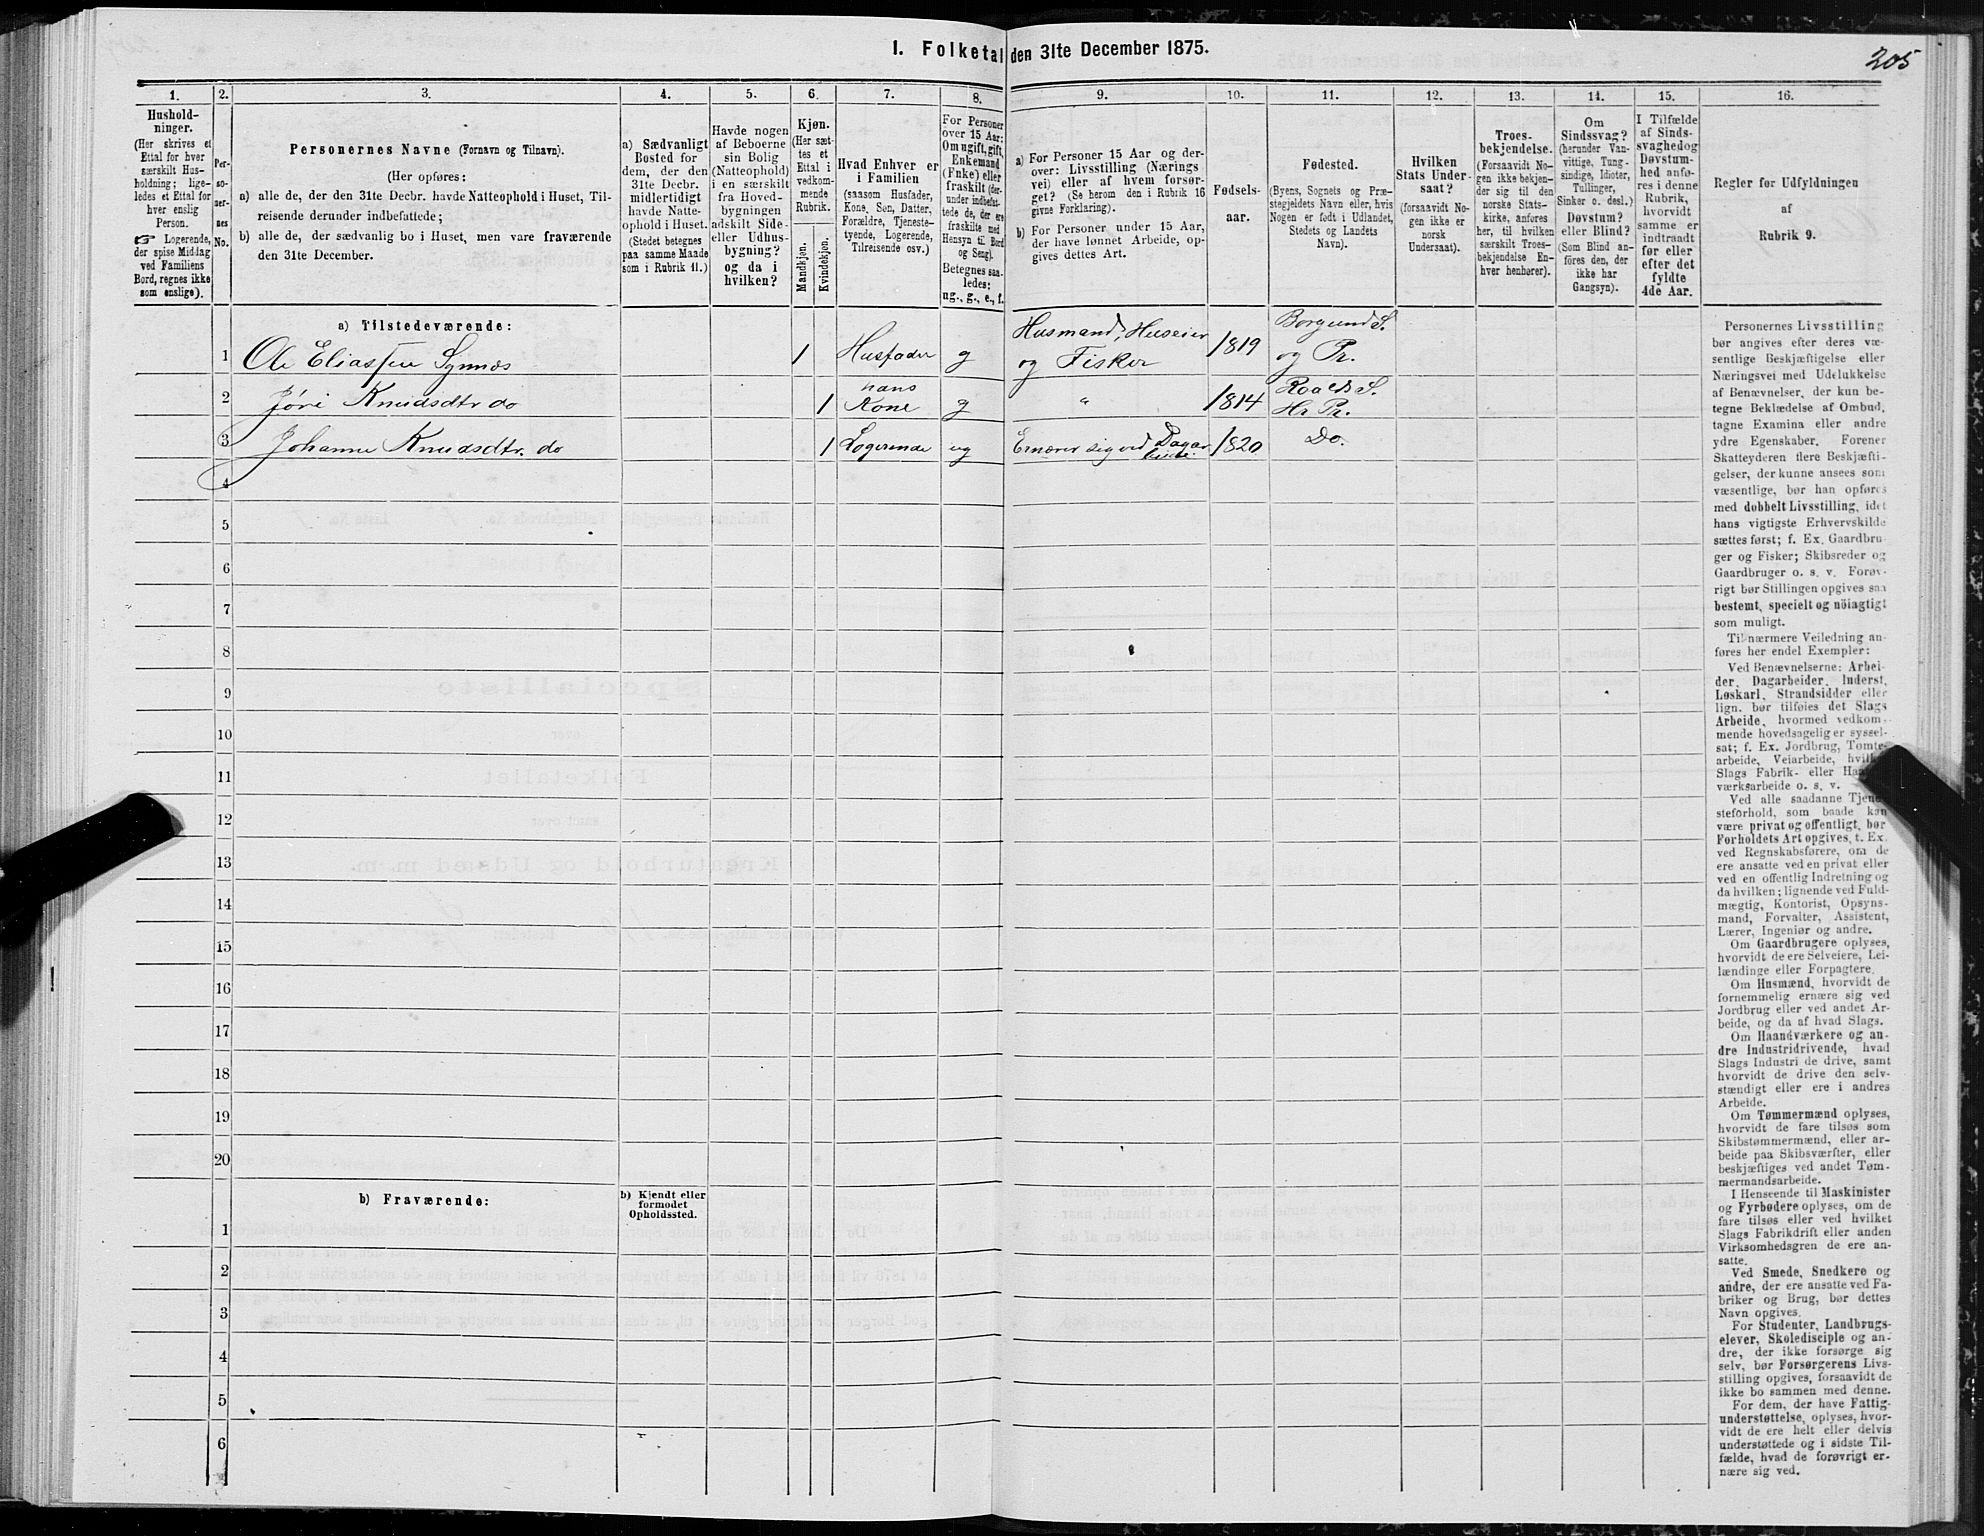 205
I. Folketal den 31te December 1875.
1. 2. 3. 4. 5. 6. 7. 8. 9. 10. 11. 12. 13. 14. 15. 16.
Hushold-
ninger.
(Her skrives et
Ettal for hver
særskilt Hus-
holdning; lige-
ledes et Ettal for
hver enslig
Person.
☞ Logerende,
der spise Middag
ved Familiens
Bord, regnes ikke
som enslige).
Per-
so-
ner-
nes
No.
Personernes Navne (Fornavn og Tilnavn).
(Her opføres:
a) alle de, der den 31te Decbr. havde Natteophold i Huset, Til-
reisende derunder indbefattede;
b) alle de, der sædvanlig bo i Huset, men vare fraværende
den 31te December.
a) Sædvanligt
Bosted for
dem, der den
31te Decbr.
midlertidigt
havde Natte-
ophold i Huset.
(Stedet betegnes
paa samme Maade
som i Rubrik 11.)
Havde nogen
af Beboerne
sin Bolig
(Natteophold)
i en særskilt
fra Hoved-
bygningen
adskilt Side-
eller Udhus-
bygning?
og da i
hvilken?
Kjøn.
(Her sæt-
tes et
Ettal i
vedkom-
mende
Rubrik.
Mandkjøn.
Kvindekjøn.
Hvad Enhver er
i Familien
(saasom Husfader,
Kone, Søn, Datter,
Forældre, Tjeneste-
tyende, Logerende,
Tilreisende osv.)
For Personer
over 15 Aar:
Om ugift, gift,
Enkemand
(Enke) eller
fraskilt (der-
under indbefat-
tede de, der ere
fraskilte med
Hensyn til Bord
og Seng).
Betegnes saa-
ledes:
ug., g., e., f.
a) For Personer 15 Aar og der-
over: Livsstilling (Nærings
vei) eller af hvem forsør-
get? (Se herom den i Rubrik 16
givne Forklaring).
b) For Personer under 15 Aar,
der have lønnet Arbeide, op-
gives dettes Art.
Fødsels-
aar.
Fødested.
(Byens, Sognets og Præ-
stegjeldets Navn eller, hvis
Nogen er født i Udlandet,
Stedets og Landets
Navn).
Hvilken
Stats Under-
saat?
(forsaavidt No-
gen ikke er
norsk
Undersaat).
Troes-
bekjendelse.
(Forsaavidt No-
gen ikke bekjen-
der sig til den
norske Stats-
kirke, anføres
her, til hvilken
særskilt Troes-
bekjendelse En-
hver henhører).
Om
Sindssvag?
(herunder Van-
vittige, Tung-
sindige, Idioter,
Tullinger,
Sinker o. desl.)
Døvstum?
eller Blind?
(Som Blind an-
føres den, der
ikke har
Gangsyn).
I Tilfælde
af Sinds-
svaghed og
Døvstum-
hed anfø-
res i denne
Rubrik,
hvorvidt
samme er
indtraadt
før eller
efter det
fyldte
4de Aar.
Regler for Udfyldningen
af
Rubrik 9.
a) Tilstedeværende:
1 Ole Eliassen Synnes 1 Husfader g Husmand, Huseier og Fisker 1819 Borgund S. og Pr.
2 Jøri Knudsdtr do 1 hans Kone g " 1814 Roalds S. Hr Pr.
3 Johanne Knudsdtr. do 1 Logerende ug Ernærer sig ved Dagarbeide 1820 Do.
4
5
6
7
8
9
10
11
12
13
14
15
16
17
18
19
20
b) Fraværende:
b) Kjendt eller
formodet
Opholdssted.
1
2
3
4
5
6
Personernes Livsstilling
bør angives efter deres væ-
sentlige Beskjæftigelse eller
Næringsvei med Udelukkelse
af Benævnelser, der kun be-
tegne Beklædelse af Ombud,
tagne Examina eller andre
ydre Egenskaber. Forener
Skatteyderen flere Beskjæfti-
gelser, der kunne ansees som
væsentlige, bør han opføres
med dobbelt Livsstilling, idet
hans vigtigste Erhvervskilde
sættes først; f. Ex. Gaardbru-
ger og Fisker; Skibsreder og
Gaardbruger o. s. v. Forøv-
rigt bør Stillingen opgives saa
bestemt, specielt og nøiagtigt
som muligt.
Til nærmere Veiledning an-
føres her endel Exempler:
Ved Benævnelserne: Arbei-
der, Dagarbeider, Inderst,
Løskarl, Strandsidder eller
lign. bør tilføies det Slags
Arbeide, hvormed vedkom-
mende hovedsagelig er syssel-
sat; f. Ex. Jordbrug, Tomte-
arbeide, Veiarbeide, hvilket
Slags Fabrik- eller Haand-
værksarbeide o. s. v.
Ved alle saadanne Tjene-
steforhold, som baade kan
være privat og offentligt, bør
Forholdets Art opgives, t. Ex.
ved Regnskabsførere, om de
ere ansatte ved en privat eller
ved en offentlig Indretning og
da hvilken; lignende ved Fuld-
mægtig, Kontorist, Opsyns-
mand, Forvalter, Assistent,
Lærer, Ingeniør og andre.
Om Gaardbrugere oplyses,
hvorvidt de ere Selveiere, Lei-
lændinge eller Forpagtere.
Om Husmænd, hvorvidt de
fornemmelig ernære sig ved
Jordbrug eller ved andet Ar-
beide, og da af hvad Slags.
Om Haandværkere og an-
dre Industridrivende, hvad
Slags Industri de drive, samt
hvorvidt de drive den selv-
stændigt eller ere i andres
Arbeide.
Om Tømmermænd oplyses,
hvorvidt de fare tilsøs som
Skibstømmermænd, eller ar-
beide paa Skibsværfter, eller
beskjæftiges ved andet Tøm-
mermandsarbeide.
I Henseende til Maskinister
og Fyrbødere oplyses, om de
fare tilsøs eller ved hvilket
Slags Fabrikdrift eller anden
Virksomhedsgren de ere an-
satte.
Ved Smede, Snedkere og
andre, der ere ansatte ved Fa-
briker og Brug, bør dettes
Navn opgives.
For Studenter, Landbrugs-
elever, Skoledisciple og an-
dre, der ikke forsørge sig
selv, bør Forsørgerens Livs-
stilling opgives, forsaavidt de
ikke bo sammen med denne.
For dem, der have Fattig-
understøttelse, oplyses, hvor-
vidt de ere helt eller delvis
understøttede og i sidste Til-
fælde, hvad de forøvrigt er-
nære sig ved.